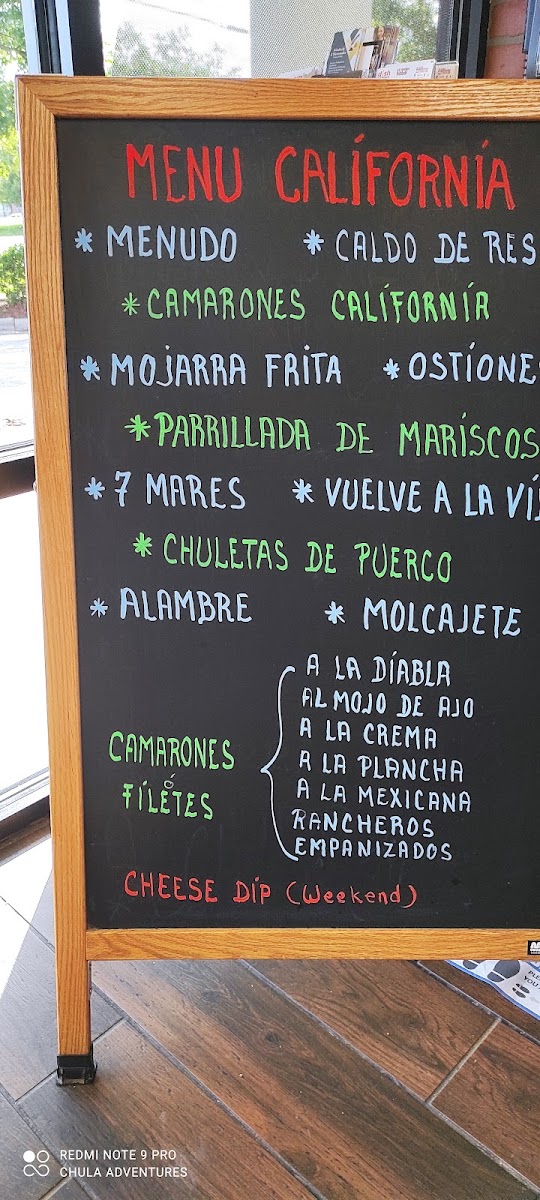 MENU CALÍFORNÍA
* MENUDO * CALDO DE RES
* CAMARONES CALÍFORNÍA
* MOJARRA FRÍTA * OSTÍONE
* PARRILLADA DE MARÍSCOS
* 7 MARES * VUELVE A LA VÍ
* CHULETAS DE PUERCO
* ALAMBRE * MOLCAJETE
CAMARONES
ó
FÍLÉTES
A LA DÍABLA
AL MOJO DE AJO
A LA CREMA
A LA PLANCHA
A LA MEXICANA
RANCHEROS
EMPANIZADOS
CHEESE DÍP (Weekend)
REDMI NOTE 9 PRO
CHULA ADVENTURES